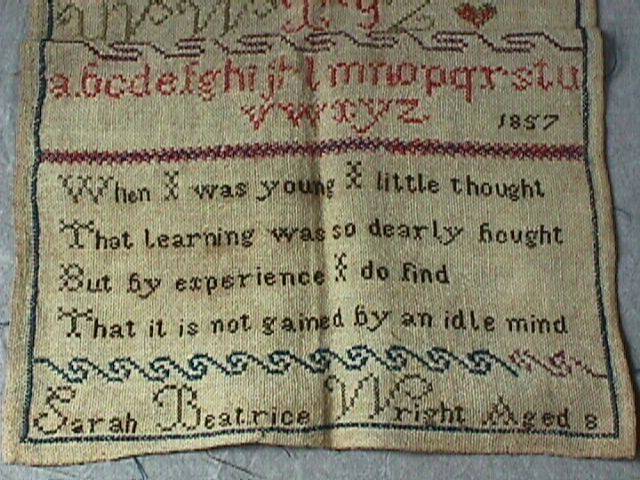 a b c d e f g h i j k l m n o p q r s t u
v w x y z 1857
When I was young I little thought
That learning was so dearly bought
But by experience I do find
That it is not gained by an idle mind
Sarah Beatrice Wright Aged 8